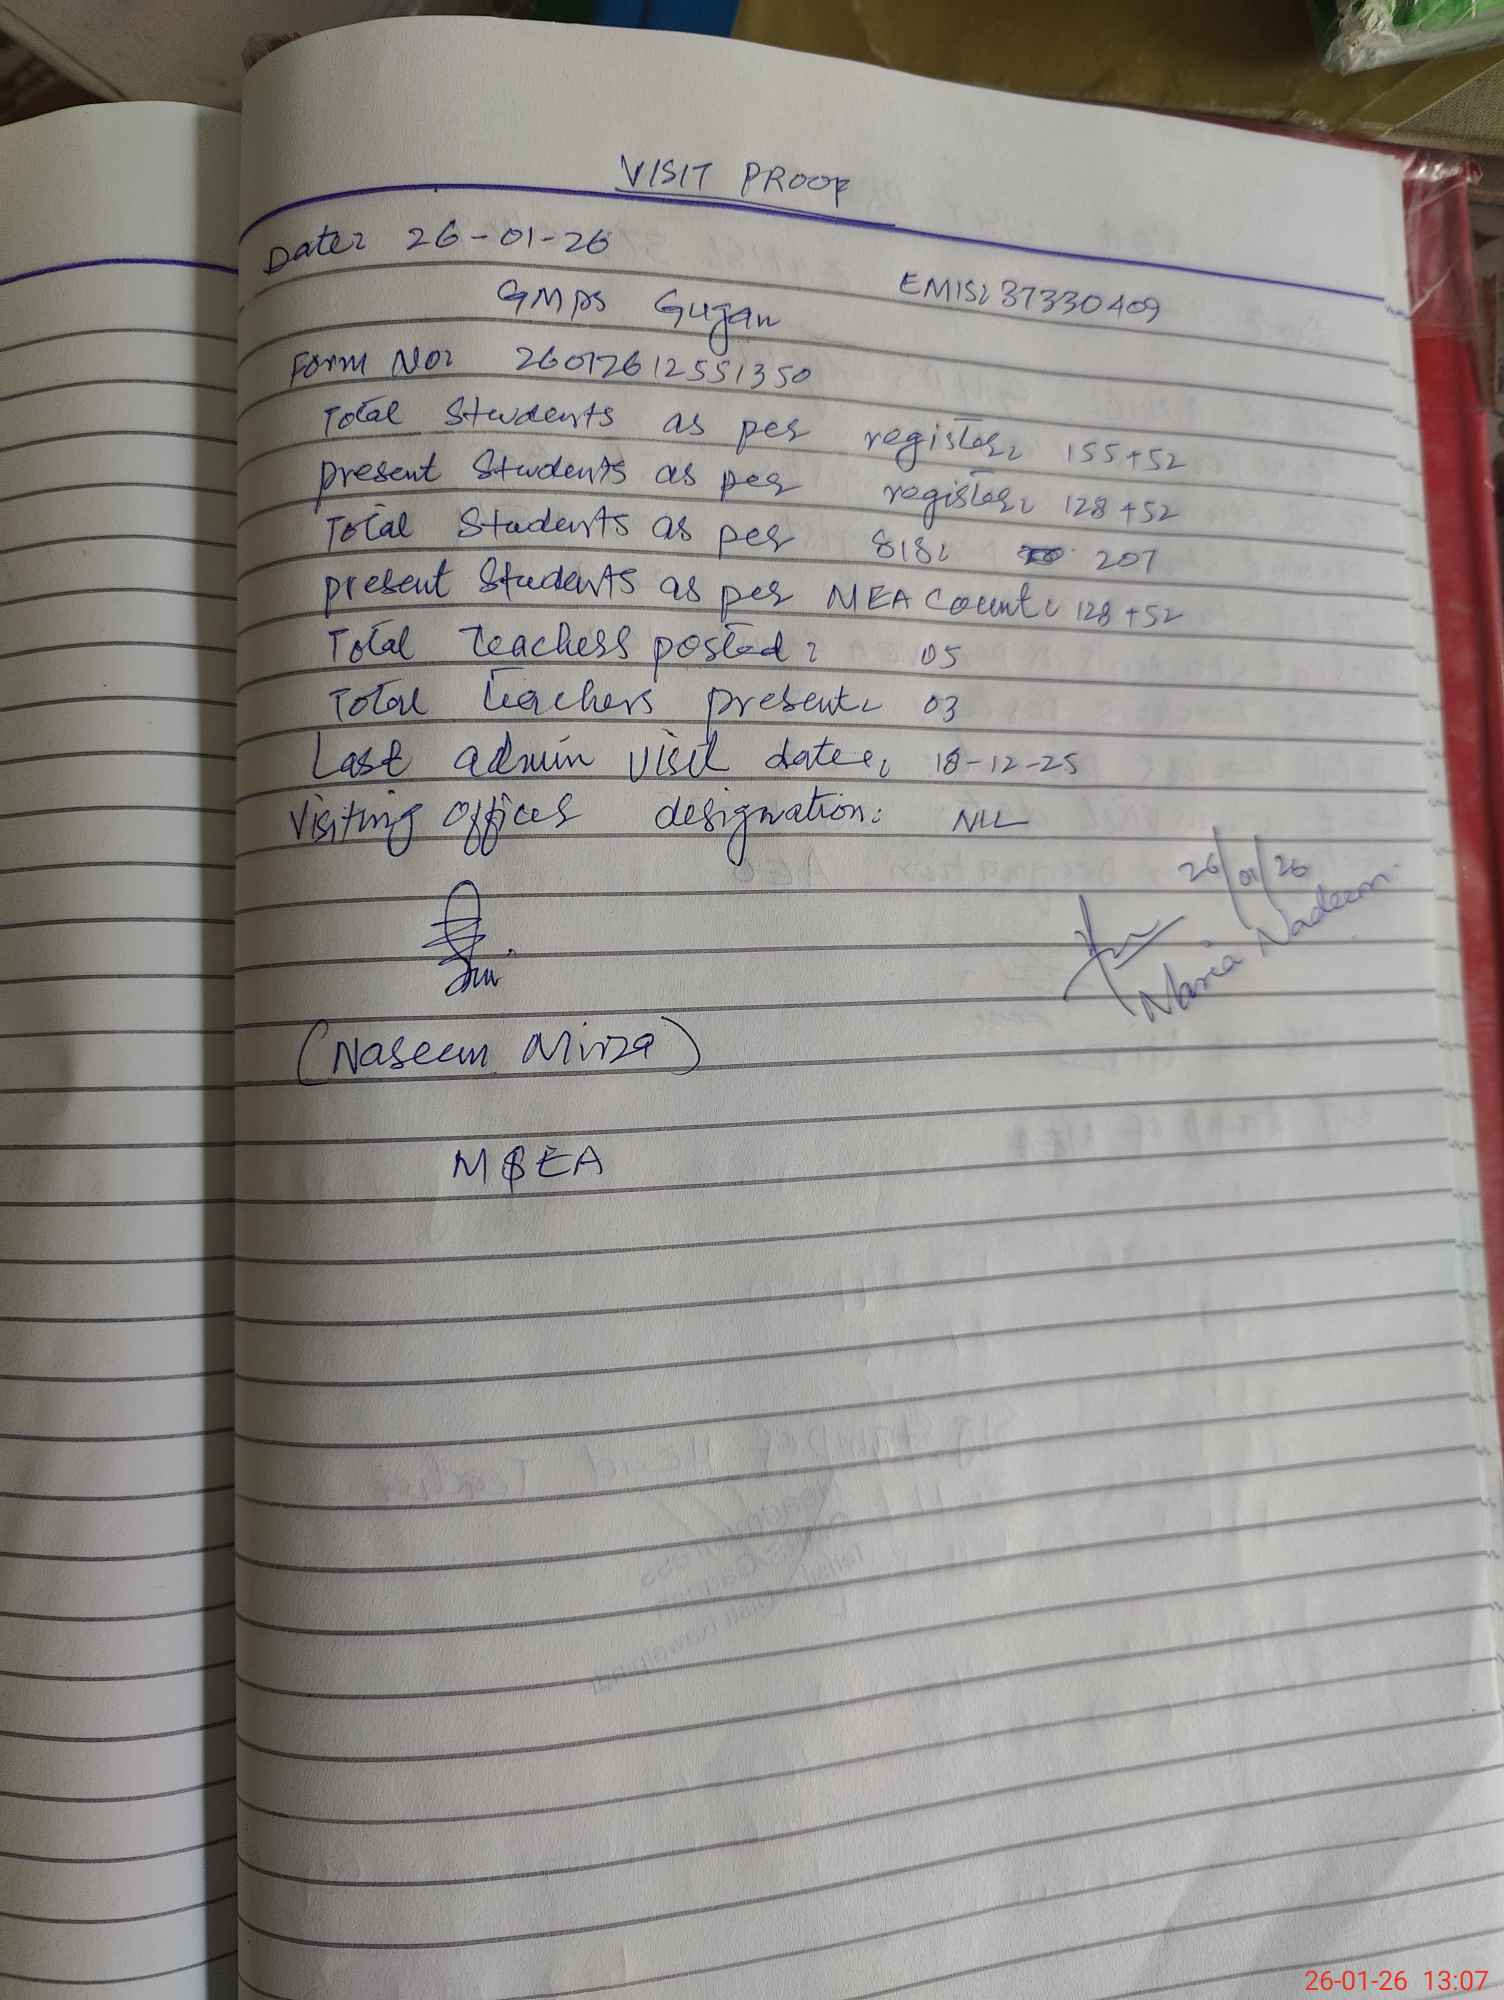 VISIT PROOF
Date: 26-01-26
EMIS: 37330409
GMPS Gujan
Form No: 26012612551350
Total Students as per register: 155+52
present Students as per register: 128+52
Total Students as per SIS: 207
present Students as per MEA Count: 128+52
Total teachers posted: 05
Total teachers present: 03
Last admin visit date: 18-12-25
Visiting officer designation: NIL
26/01/26
Maria Nadeem
(Naseem Mirza)
MEA
26-01-26 13:07